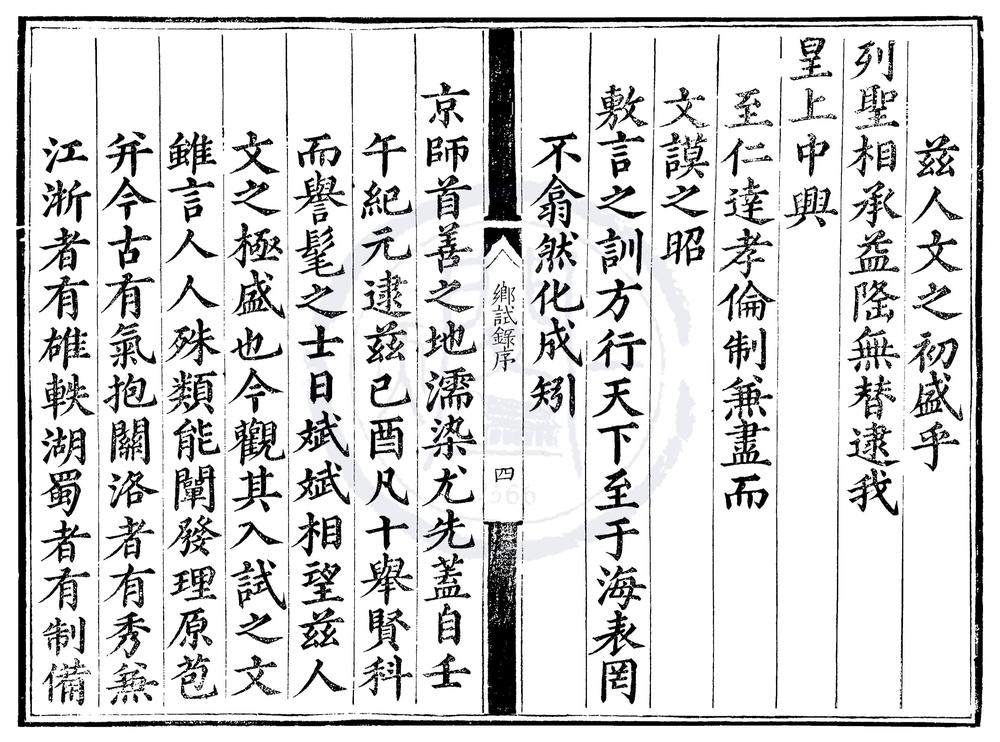 兹人文之初盛乎
列聖相承益隆無替逮我
皇上中興
至仁達孝倫制兼盡而
文謨之昭
敷言之訓方行天下至于海表罔
不翕然化成矧
鄉試錄序
四
京師首善之地濡染尤先蓋自壬
午紀元逮兹己酉凡十舉賢科
而譽髦之士日斌斌相望兹人
文之極盛也今觀其入試之文
雖言人人殊類能闡發理原苞
并今古有氣抱關洛者有秀兼
江浙者有雄軼湖蜀者有制備